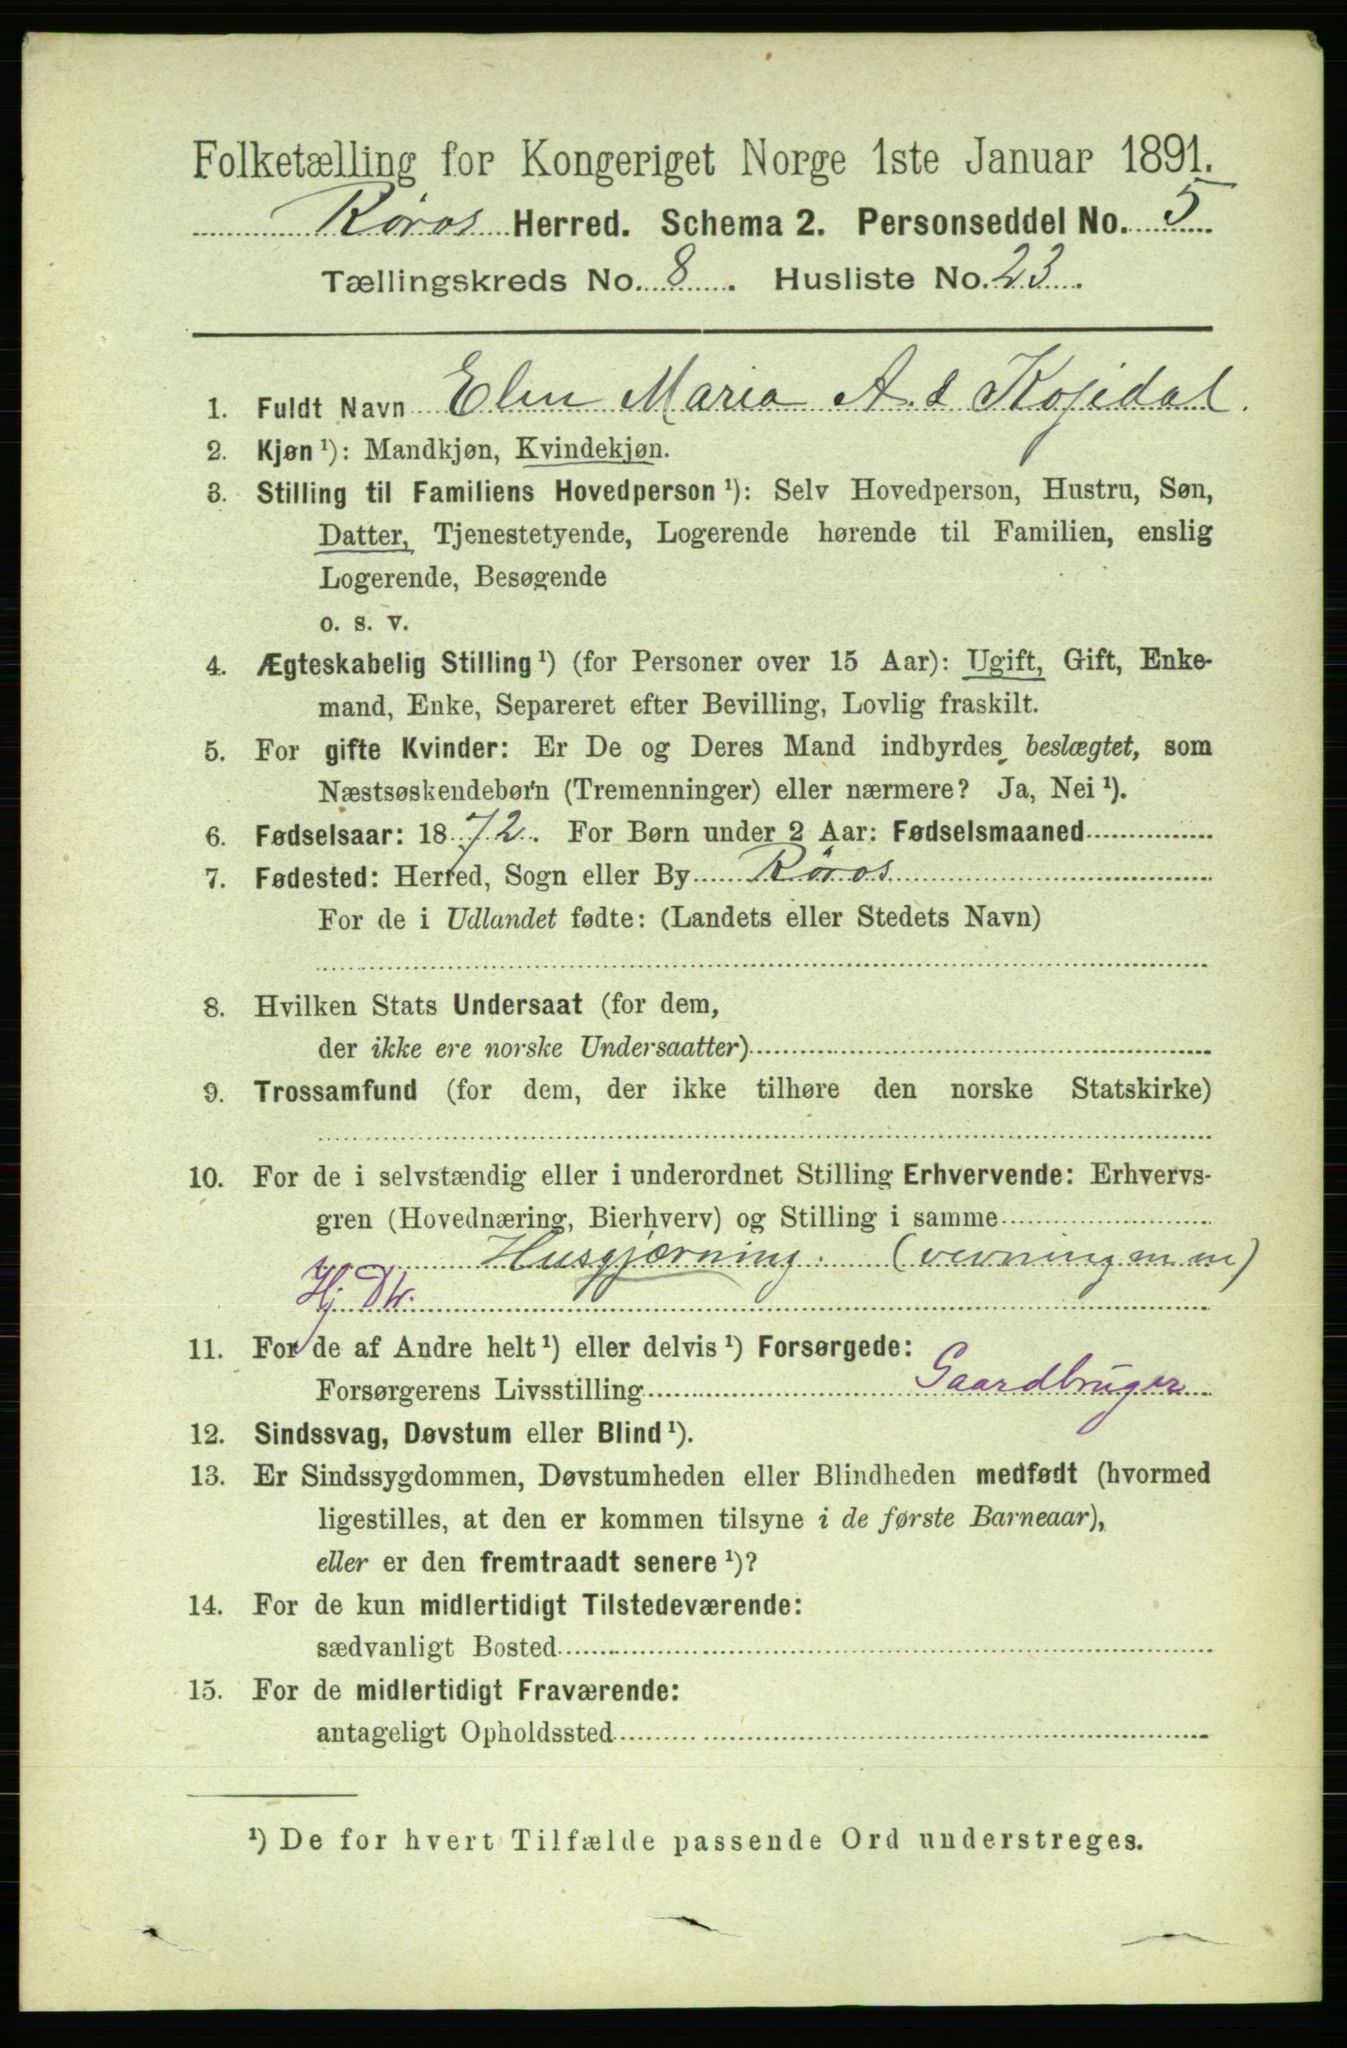 Folketælling for Kongeriget Norge 1ste Januar 1891.
Røros Herred. Schema 2. Personseddel No. 5
Tællingskreds No. 8. Husliste No. 23.
1. Fuldt Navn Elen Maria A. d Kojedal.
2. Kjøn ¹): Mandkjøn, Kvindekjøn.
3. Stilling til Familiens Hovedperson ¹): Selv Hovedperson, Hustru, Søn,
Datter, Tjenestetyende, Logerende hørende til Familien, enslig
Logerende, Besøgende
o. s. v.
4. Ægteskabelig Stilling ¹) (for Personer over 15 Aar): Ugift, Gift, Enke-
mand, Enke, Separeret efter Bevilling, Lovlig fraskilt.
5. For gifte Kvinder: Er De og Deres Mand indbyrdes beslægtet, som
Næstsøskendebørn (Tremenninger) eller nærmere? Ja, Nei ¹).
6. Fødselsaar: 1872. For Børn under 2 Aar: Fødselsmaaned
7. Fødested: Herred, Sogn eller By Røros
For de i Udlandet fødte: (Landets eller Stedets Navn)
8. Hvilken Stats Undersaat (for dem,
der ikke ere norske Undersaatter)
9. Trossamfund (for dem, der ikke tilhøre den norske Statskirke)
10. For de i selvstændig eller i underordnet Stilling Erhvervende: Erhvervs-
gren (Hovednæring, Bierhverv) og Stilling i samme
Husgjærning. (vevning m m)
Hj. Dtr.
11. For de af Andre helt ¹) eller delvis ¹) Forsørgede:
Forsørgerens Livsstilling Gaardbruger
12. Sindssvag, Døvstum eller Blind ¹).
13. Er Sindssygdommen, Døvstumheden eller Blindheden medfødt (hvormed
ligestilles, at den er kommen tilsyne i de første Barneaar),
eller er den fremtraadt senere ¹)?
14. For de kun midlertidigt Tilstedeværende:
sædvanligt Bosted
15. For de midlertidigt Fraværende:
antageligt Opholdssted
¹) De for hvert Tilfælde passende Ord understreges.